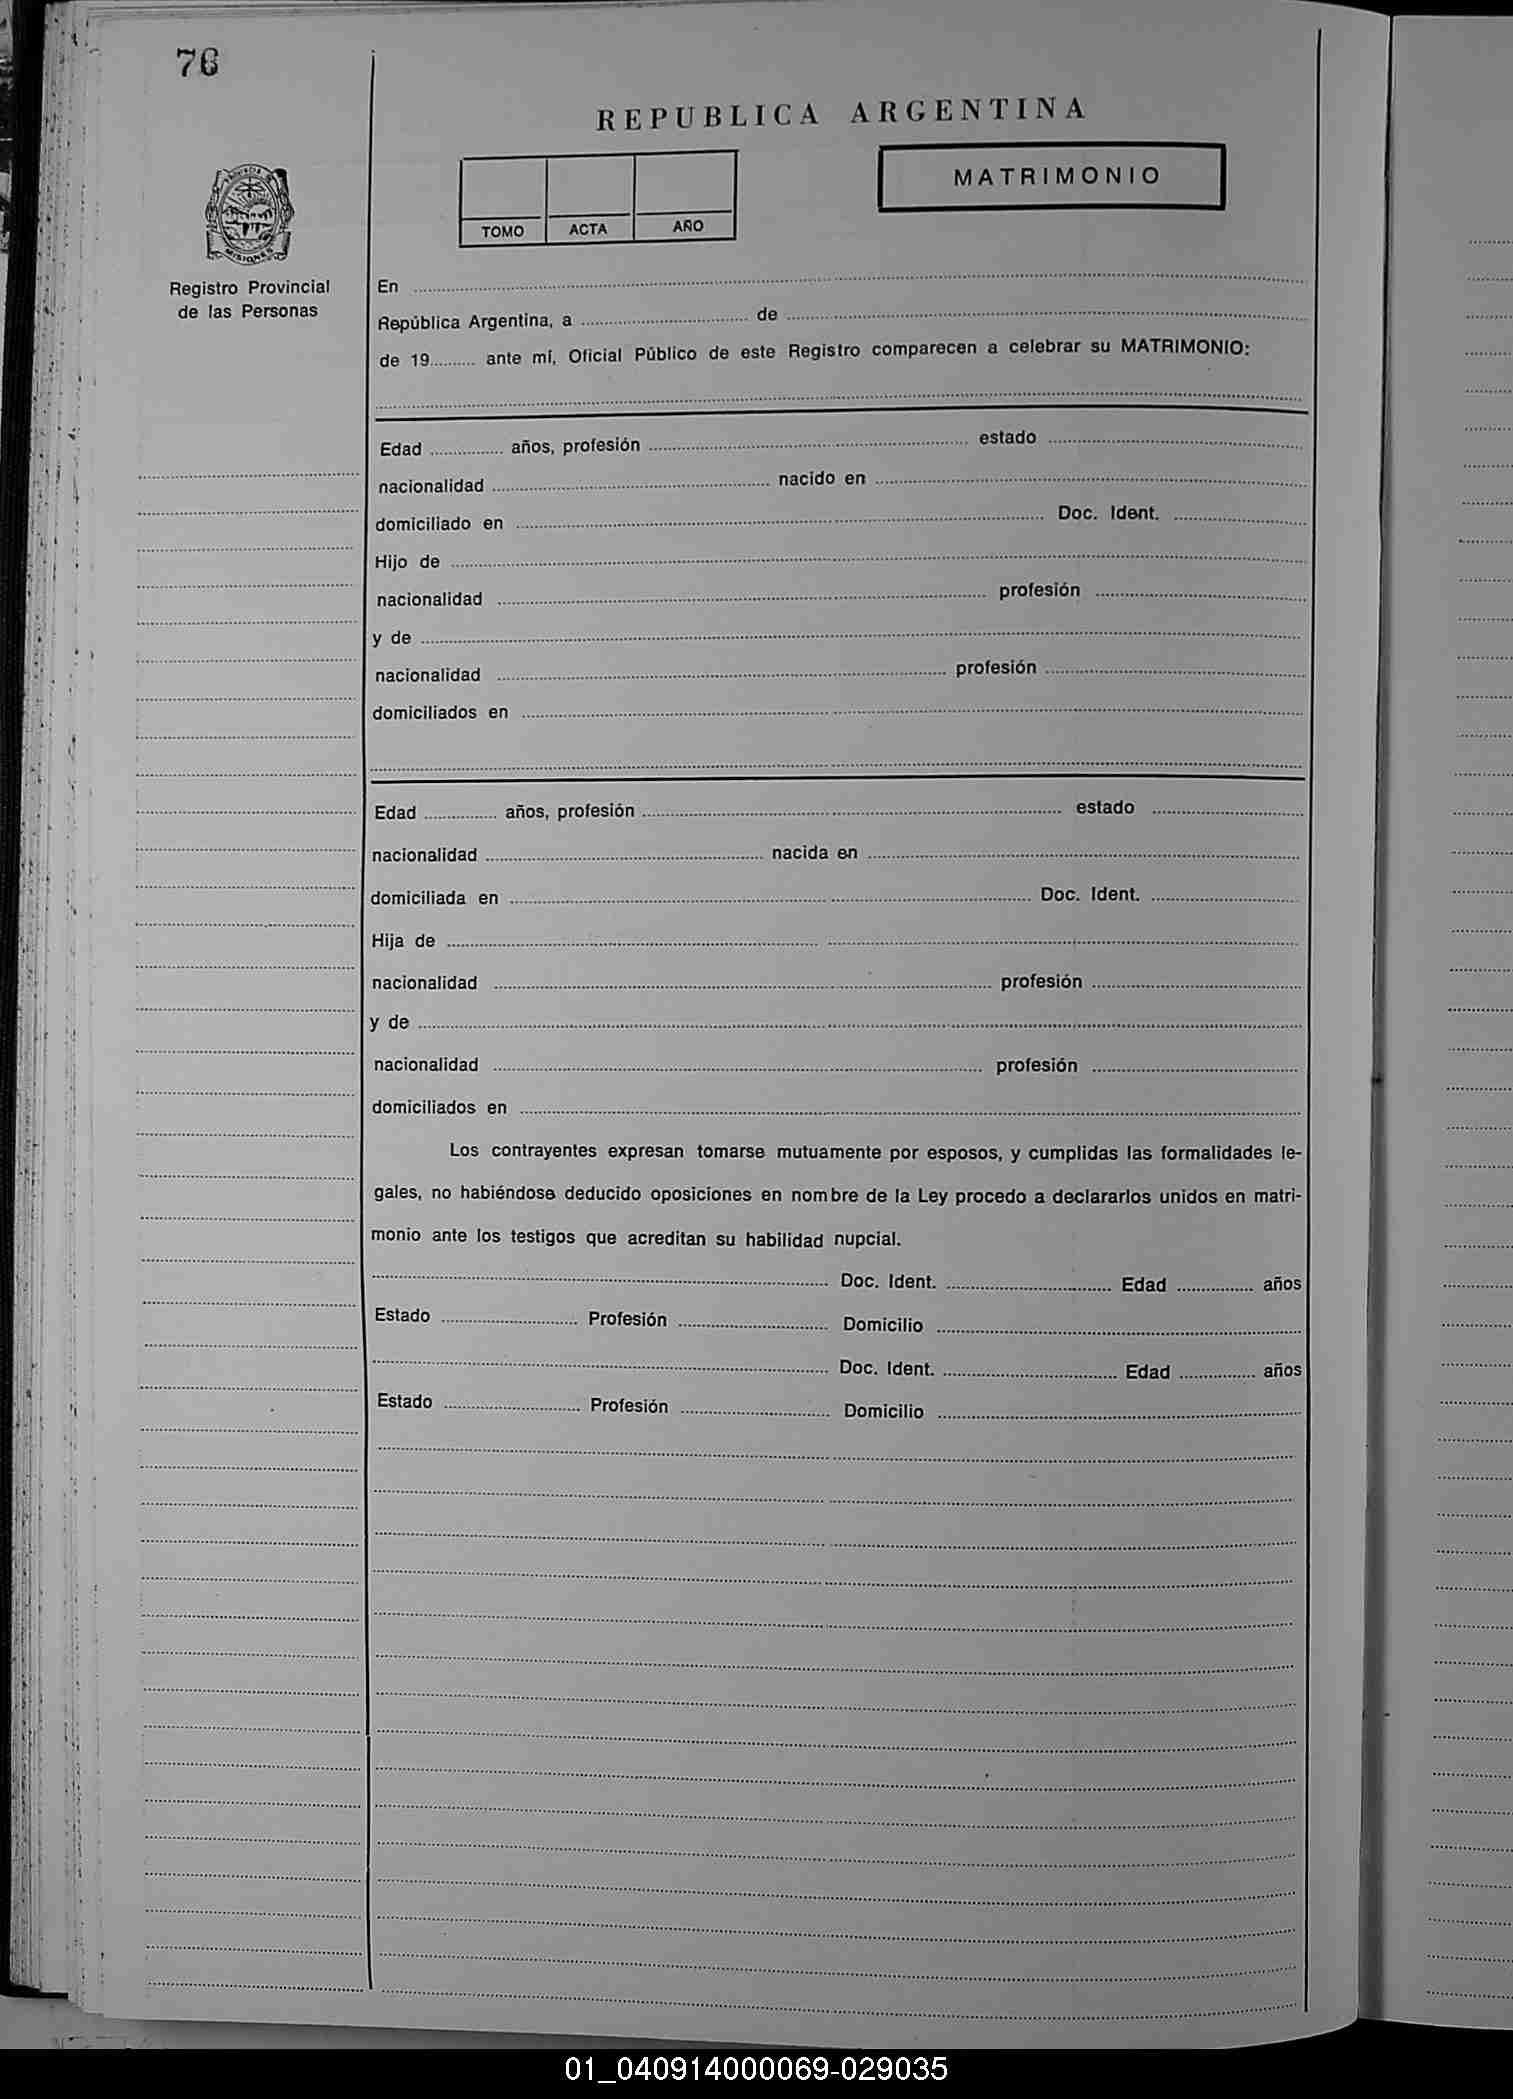 76
REPUBLICA ARGENTINA
MATRIMONIO
TOMO ACTA AÑO
MISIONES
Registro Provincial
de las Personas
En
República Argentina, a de
de 19 ante mí, Oficial Público de este Registro comparecen a celebrar su MATRIMONIO:
Edad años, profesión estado
nacionalidad nacido en
domiciliado en Doc. Ident.
Hijo de
nacionalidad profesión
y de
nacionalidad profesión
domiciliados en
Edad años, profesión estado
nacionalidad nacida en
domiciliada en Doc. Ident.
Hija de
nacionalidad profesión
y de
nacionalidad profesión
domiciliados en
Los contrayentes expresan tomarse mutuamente por esposos, y cumplidas las formalidades le-
gales, no habiéndose deducido oposiciones en nombre de la Ley procedo a declararlos unidos en matri-
monio ante los testigos que acreditan su habilidad nupcial.
Doc. Ident. Edad años
Estado Profesión Domicilio
Doc. Ident. Edad años
Estado Profesión Domicilio
01_040914000069-029035